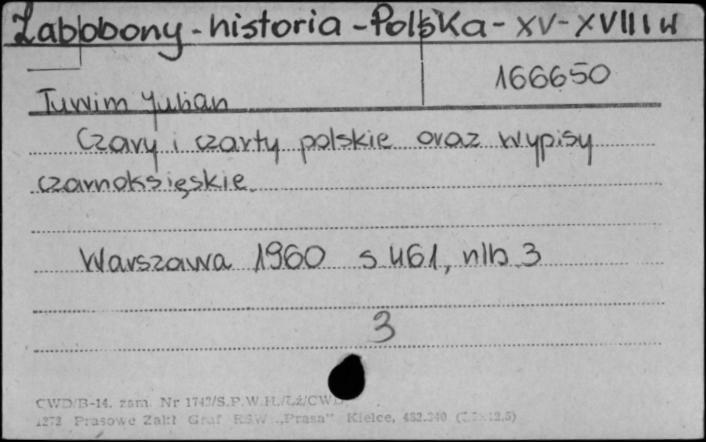 Zabobony - historia - Polska - XV - XVIII w
166650
Tuwim Julian
Czary i czarty polskie oraz wypisy
czarnoksięskie.
Warszawa 1960 s 461, nlb 3
3
CWD/B-14. zam. Nr 1742/S.P.W.H./Lż/CWD
1272 Prasowe Zakł Graf RSW „Prasa” Kielce,